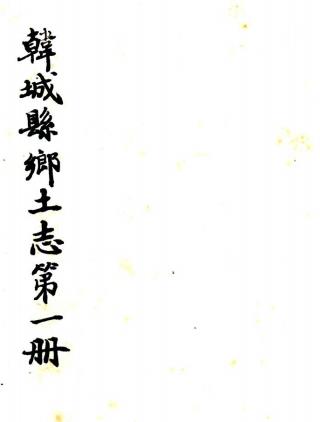 韓城縣鄉土志第一册